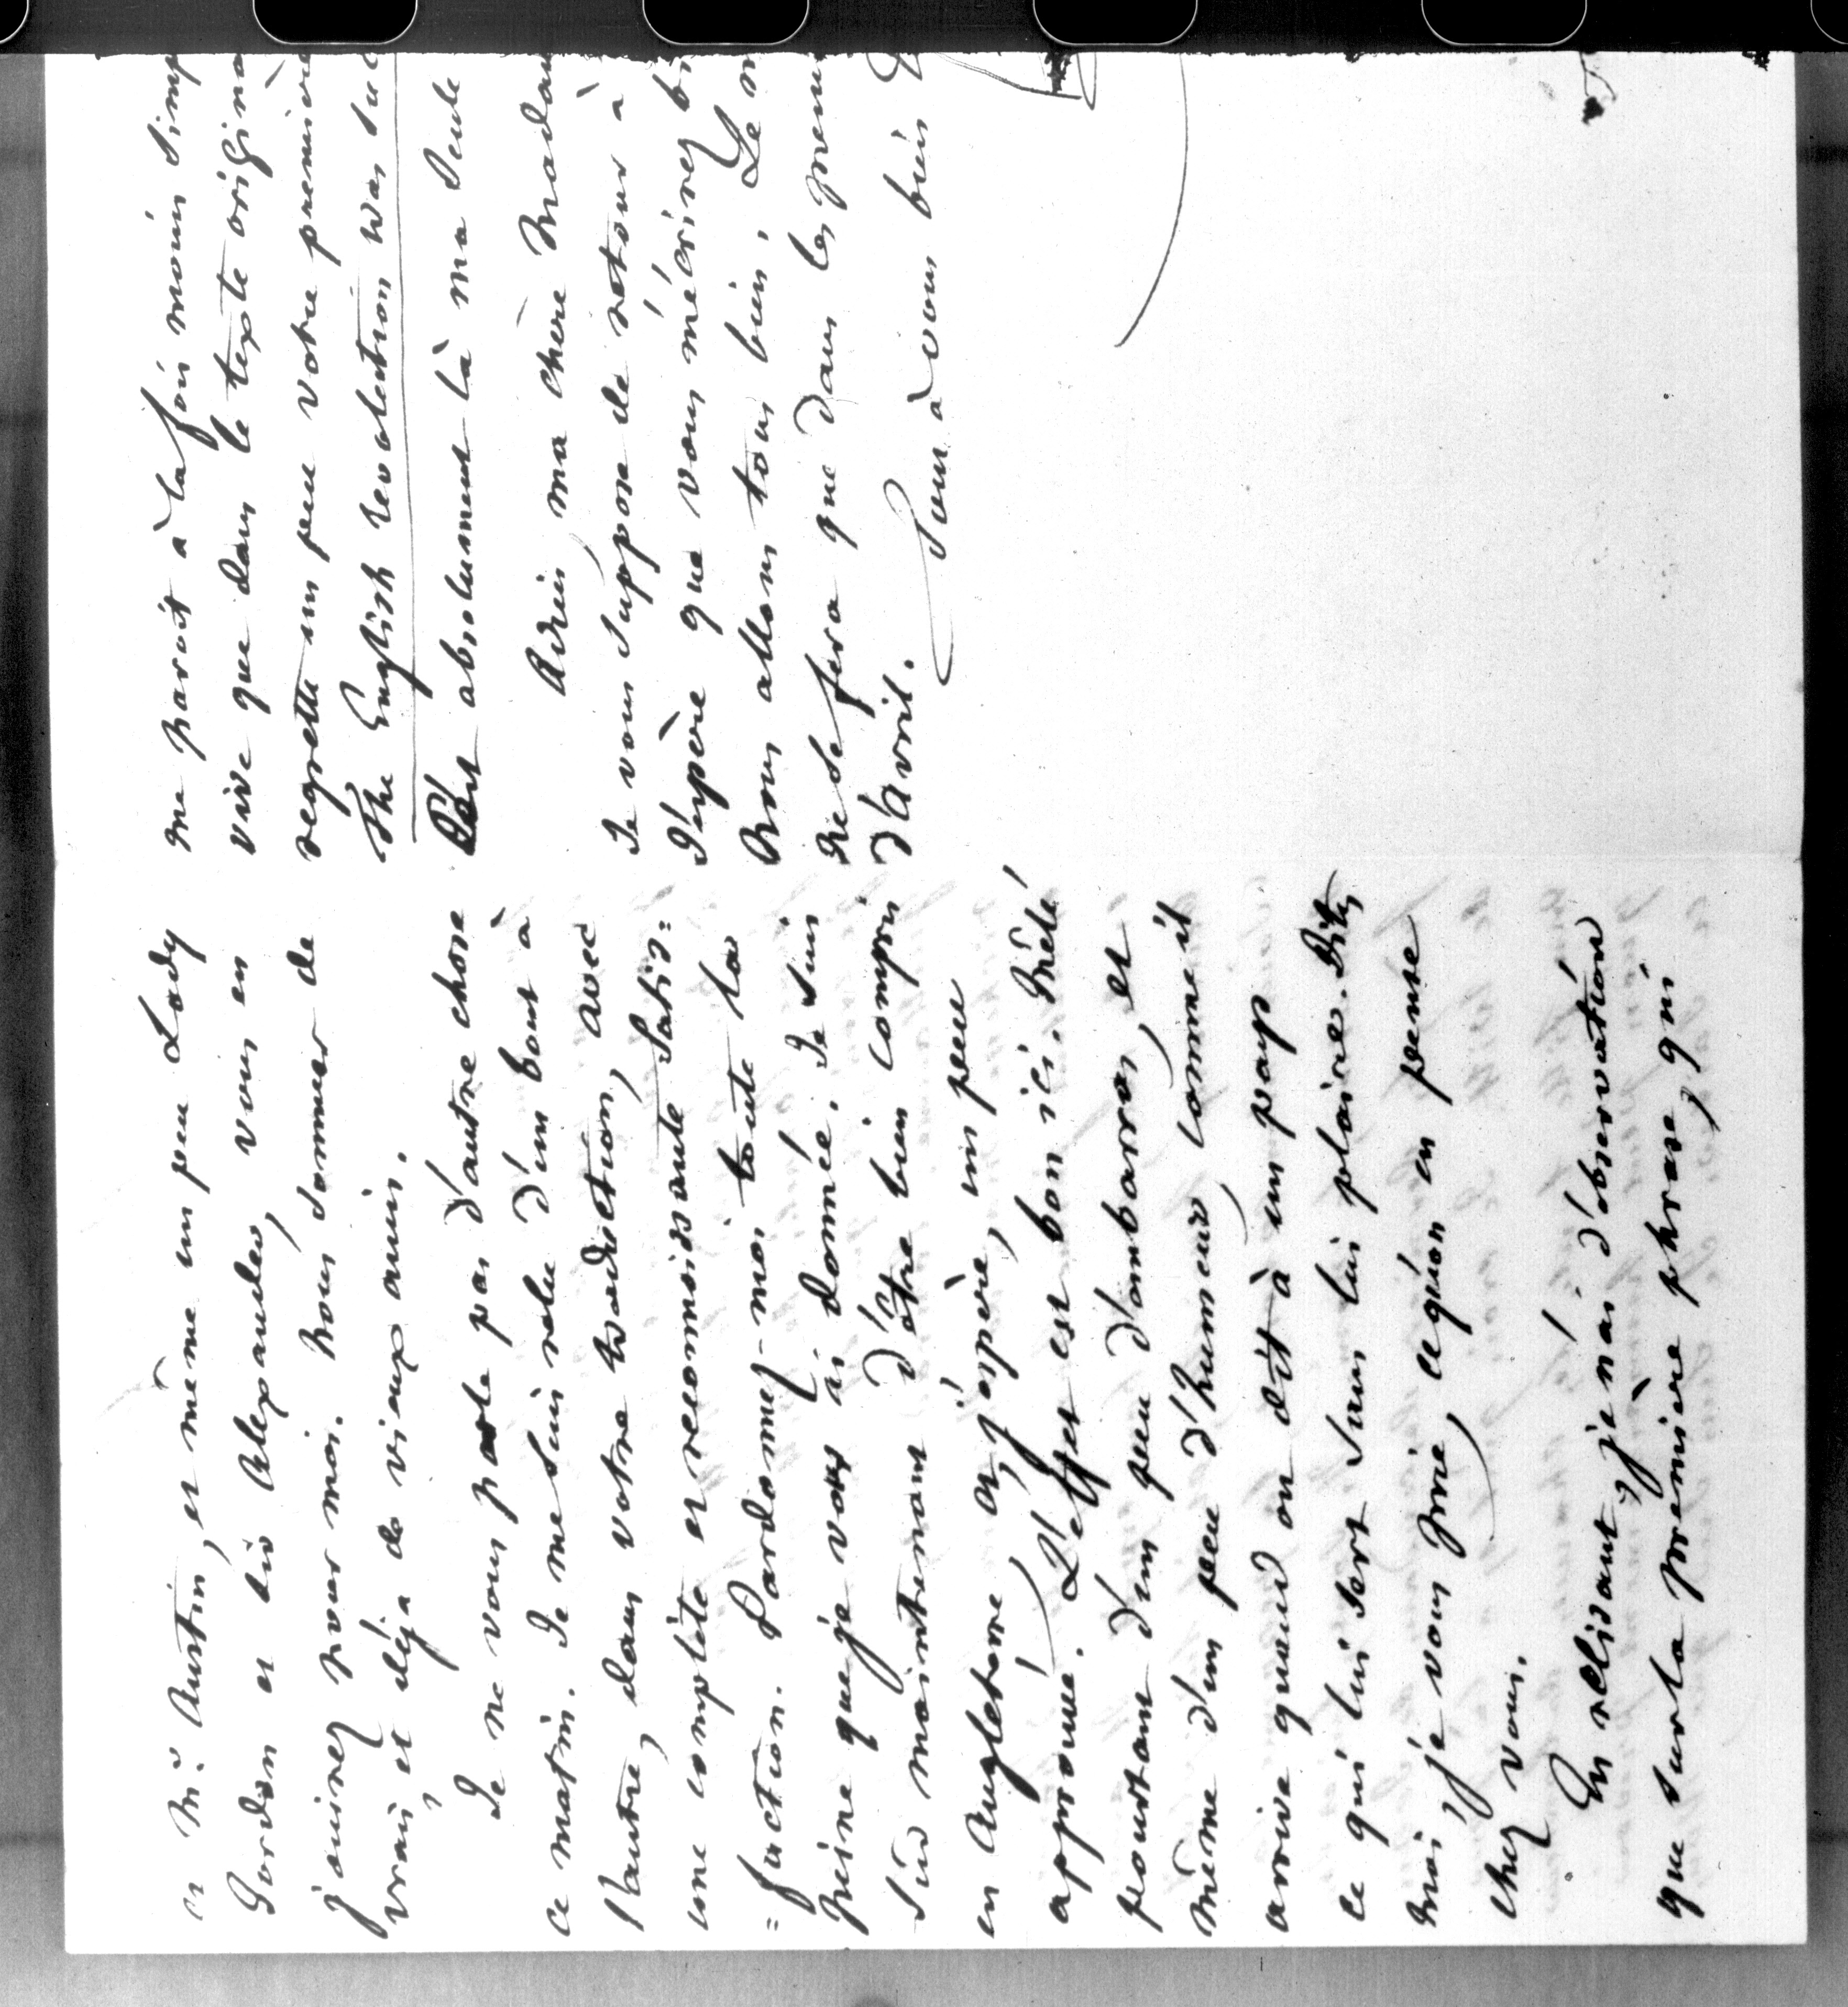 et Mr. Austin, et même un peu Lady
Gordon et Sir Alexander, vous en
jouirez pour moi. Nous sommes de
vrais et déjà de vieux amis.
Je ne vous parle pas d'autre chose
ce matin. Je me suis relu d'un bout à
l'autre, dans votre traduction, avec
une complète et reconnoissante satis=
=faction. Pardonnez-moi toute la
peine que je vous ai donnée. Je suis
sûr maintenant d'être bien compris
en Angleterre, et, j'espère, un peu
approuvé. L'effet est bon ici. Mêlé
pourtant d'un peu d'embarras, et
même d'un peu d'humeur, comme il
arrive quand on dit à un pays
ce qui lui sert sans lui plaire. Dites
moi, je vous prie, ce qu'on en pense
chez vous.
En relisant, je n'ai d'observation
que sur la première phrase, qui
me paroit à la fois moins simp
vive que dans le texte origina
regrette un peu votre première
The English revolution was suc
C'est absolument là ma seule
Adieu, ma chère Madam
Je vous suppose de retour à
J'espère que vous m'écrirez b
Nous allons tous bien. Le m
ne se fera que dans les premi
d'avril.
Tout à vous bien